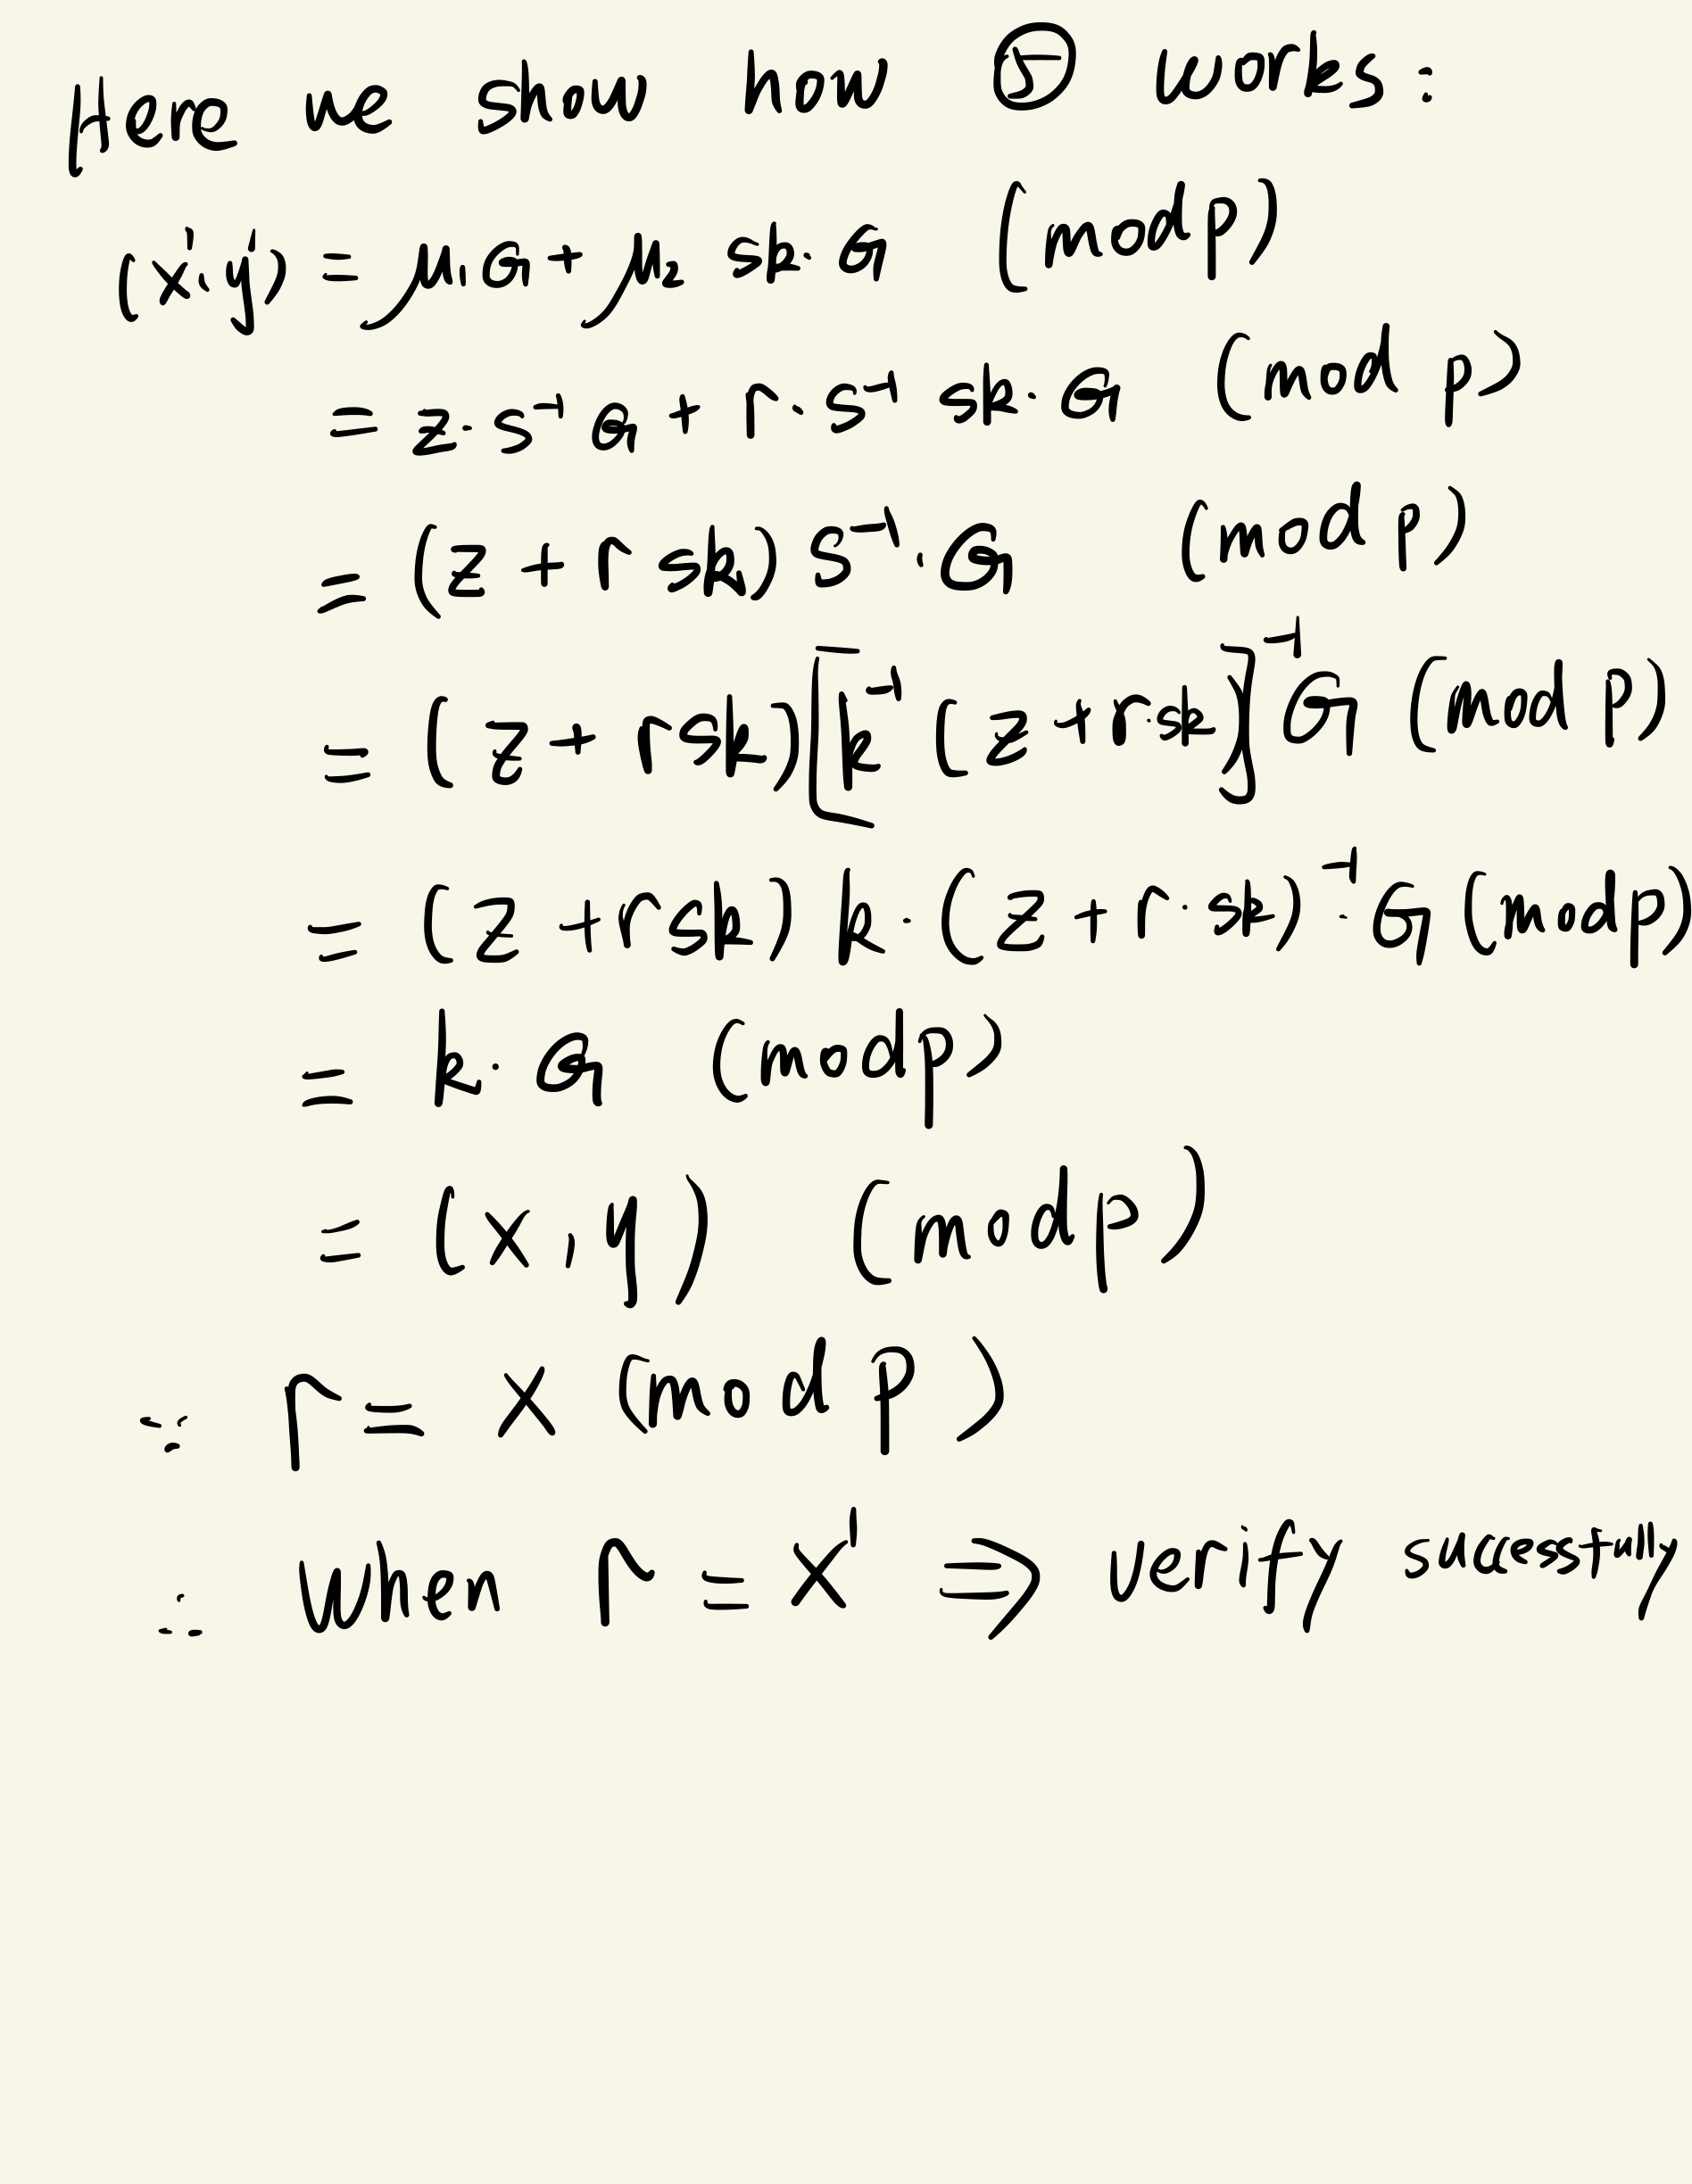 Here we show how ⑤ works:
(x', y') = μ₁ G + μ₂ sk · G (mod p)
= z · s⁻¹ G + r · s⁻¹ sk · G (mod p)
= (z + r sk) s⁻¹ · G (mod p)
= (z + r sk) [k⁻¹ (z + r · sk]⁻¹ G (mod p)
= (z + r sk) k · (z + r · sk)⁻¹ · G (mod p)
= k · G (mod p)
= (x, y) (mod p)
∵ r = x (mod p)
∴ when r = x' ⇒ verify successfully